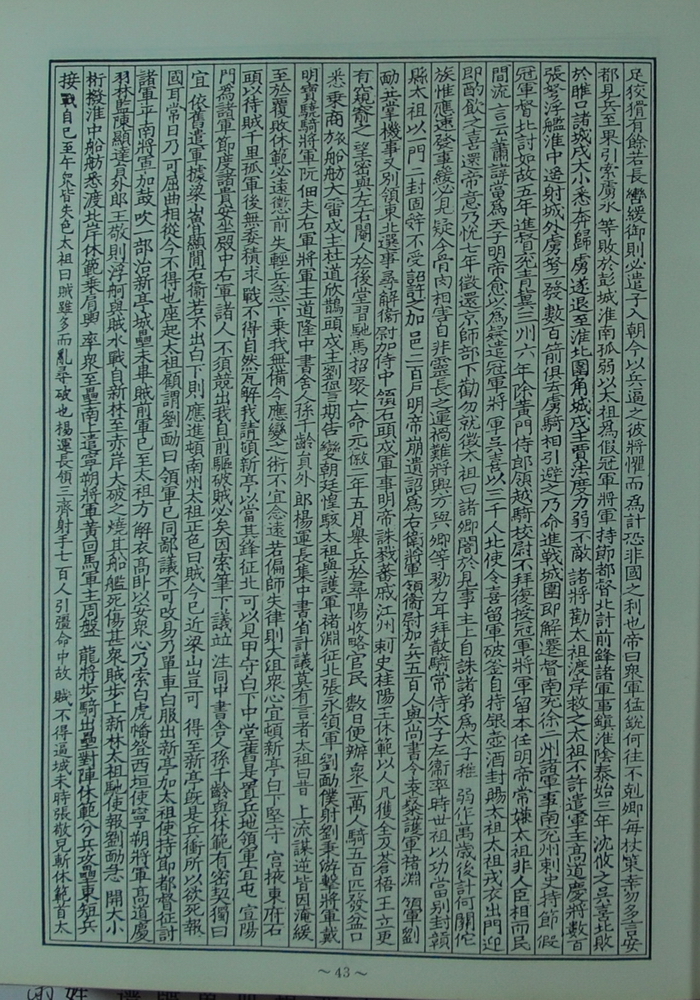 足狡猾有餘若長轡緩御則必遣子入朝今以兵逼之彼將懼而為計恐非國之利也帝曰衆軍猛銳何往不剋卿每杖策幸勿多言安
都見兵至果引索虜永等敗於彭城淮南孤弱以太祖為假冠軍將軍持節都督北討前鋒諸軍事鎮淮陰泰始三年沈攸之吳喜北敗
於睢口諸城戍大小悉奔歸虜遂退至淮北圍角城戍主賈法度力弱不敵諸將勸太祖渡岸救之太祖不許遣軍主高道慶將數百
張弩浮艦淮中遙射城外虜弩一發數百箭俱去虜騎相引避之乃命進戰城圍即解遷督南兗徐二州諸軍事南兗州刺史持節假
冠軍督北討如故五年進督兗青冀三州六年除黃門侍郎領越騎校尉不拜復授冠軍將軍留本任明帝常嫌太祖非人臣相而民
間流言云蕭諱當為天子明帝愈以為疑遣冠軍將軍吳喜以三千人北使令喜留軍破釜自持銀壺酒封賜太祖太祖戎衣出門迎
即酌飲之喜還帝意乃悅七年徵還京師部下勸勿就徵太祖曰諸卿闇於見事主上自誅諸弟為太子稚弱作萬歲後計何關佗
族惟應速發事緩必見疑今骨肉相害自非靈長之運禍難將興方與卿等勠力耳拜散騎常侍太子左衛率時世祖以功當別封贛
縣太祖以一門二封固辭不受詔許之加邑二百戶明帝崩遺詔為右衛將軍領衛尉加兵五百人與尚書令袁粲護軍褚淵領軍劉
勔共掌機事又別領東北選事尋解衛尉加侍中領石頭戍軍事明帝誅戮蕃戚江州刺史桂陽王休範以人凡獲全及蒼梧王立更
有窺窬之望密與左右閹人於後堂習馳馬招聚亡命元徽二年五月舉兵於尋陽收略官民數日便辦衆二萬人騎五百匹發盆口
悉乘商旅船舫大雷戍主杜道欣鵲頭戍主劉諐期告變朝廷惶駭太祖與護軍褚淵征北張永領軍劉勔僕射劉秉游擊將軍戴
明寶驍騎將軍阮佃夫右軍將軍王道隆中書舍人孫千齡員外郎楊運長集中書省計議莫有言者太祖曰昔上流謀逆皆因淹緩
至於覆敗休範必遠懲前失輕兵急下乘我無備今應變之術不宜念遠若偏師失律則大沮衆心宜頓新亭白下堅守宮掖東府石
頭以待賊千里孤軍後無委積求戰不得自然瓦解我請頓新亭以當其鋒征北可以見甲守白下中堂舊是置兵地領軍宜屯宣陽
門為諸軍節度諸貴安坐殿中右軍諸人不須競出我自前驅破賊必矣因索筆下議竝注同中書舍人孫千齡與休範有密契獨曰
宜依舊遣軍據梁山魯顯閒右衛若不出白下則應進頓南州太祖正色曰賊今已近梁山豈可得至新亭旣是兵衝所以欲死報
國耳常日乃可屈曲相從今不得也座起太祖顧謂劉勔曰領軍已同鄙議不可改易乃單車白服出新亭加太祖使持節都督征討
諸軍平南將軍加鼓吹一部治新亭城壘未畢賊前軍已至太祖方解衣高臥以安衆心乃索白虎幡登西垣使寧朔將軍高道慶
羽林監陳顯達員外郎王敬則浮舸與賊水戰自新林至赤岸大破之燒其船艦死傷甚衆賊步上新林太祖馳使報劉勔急開大小
桁撥淮中船舫悉渡北岸休範乘肩輿率衆至壘南上遣寧朔將軍黃回馬軍主周盤龍將步騎出壘對陣休範分兵攻壘東短兵
接戰自巳至午衆皆失色太祖曰賊雖多而亂尋破也楊運長領三齊射手七百人引彊命中故賊不得逼城未時張敬兒斬休範首太
~43~